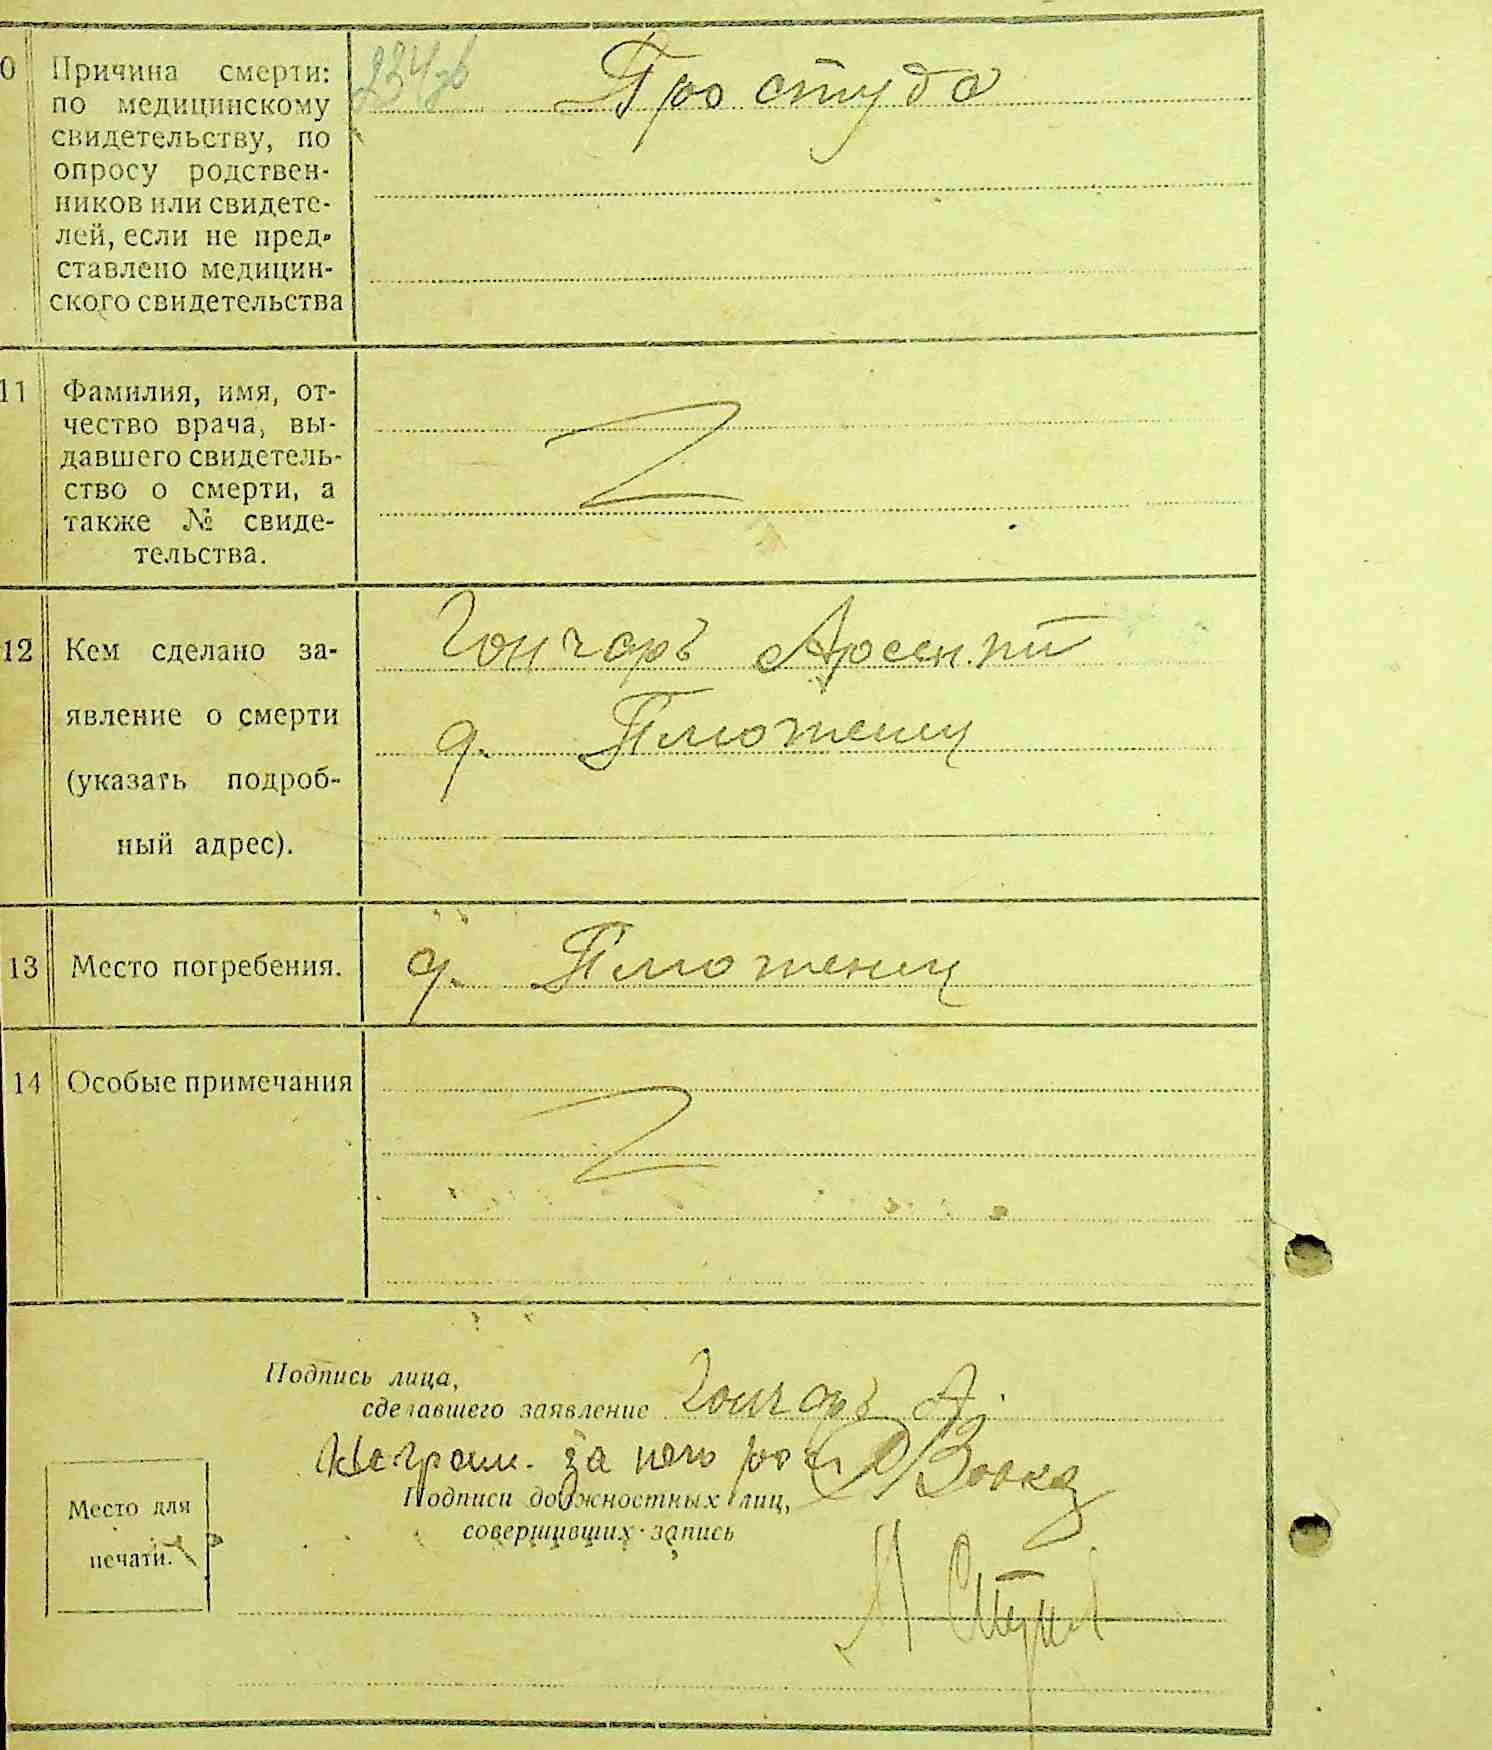 0 Причина смерти:
по медицинскому
свидетельству, по
опросу родствен-
ников или свидете-
лей, если не пред-
ставлено медицин-
ского свидетельства
Простуда
11 Фамилия, имя, от-
чество врача, вы-
давшего свидетель-
ство о смерти, а
также № свиде-
тельства.
12 Кем сделано за-
явление о смерти
(указать подроб-
ный адрес).
Гончаръ Арсентий
д.
13 Место погребения.
д.
14 Особые примечания
Подпись лица,
сделавшего заявление Гончаръ А.
за него
Подписи должностных лиц,
совершивших запись
Место для
печати.